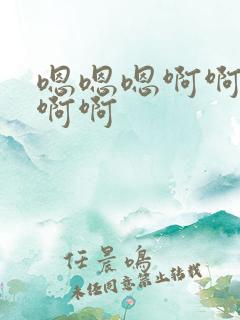 嗯嗯嗯啊啊
啊啊
任晨鸣
未经同意禁止转载